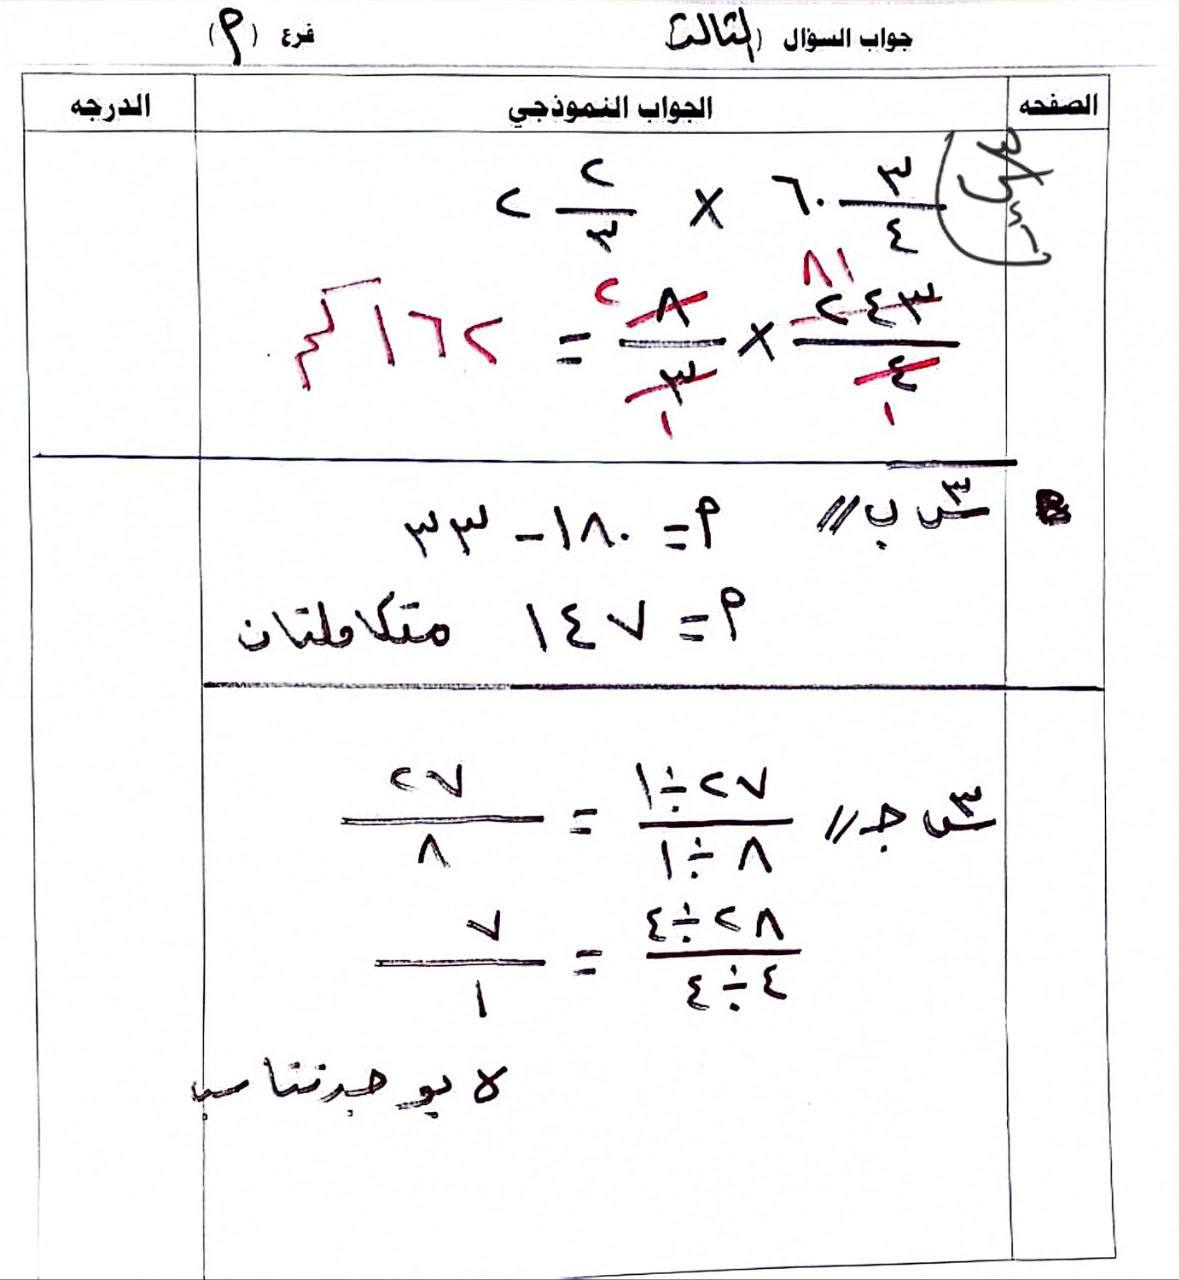 جواب السؤال (الثالث) فرع (م)
الصفحه الجواب النموذجي الدرجه
٦٠ ٣/٤ × ٢ ٢/٣
٢٤٣/٤ × ٨/٣ = ١٦٢ كم
٨١ ٢
١ ١
س٣ ب // م = ١٨٠ - ٣٣
م = ١٤٧ متكاملتان
س٣ جـ // ٢٧÷١ / ٨÷١ = ٢٧/٨
٢٨÷٤ / ٤÷٤ = ٧/١
لا يوجد تناسب